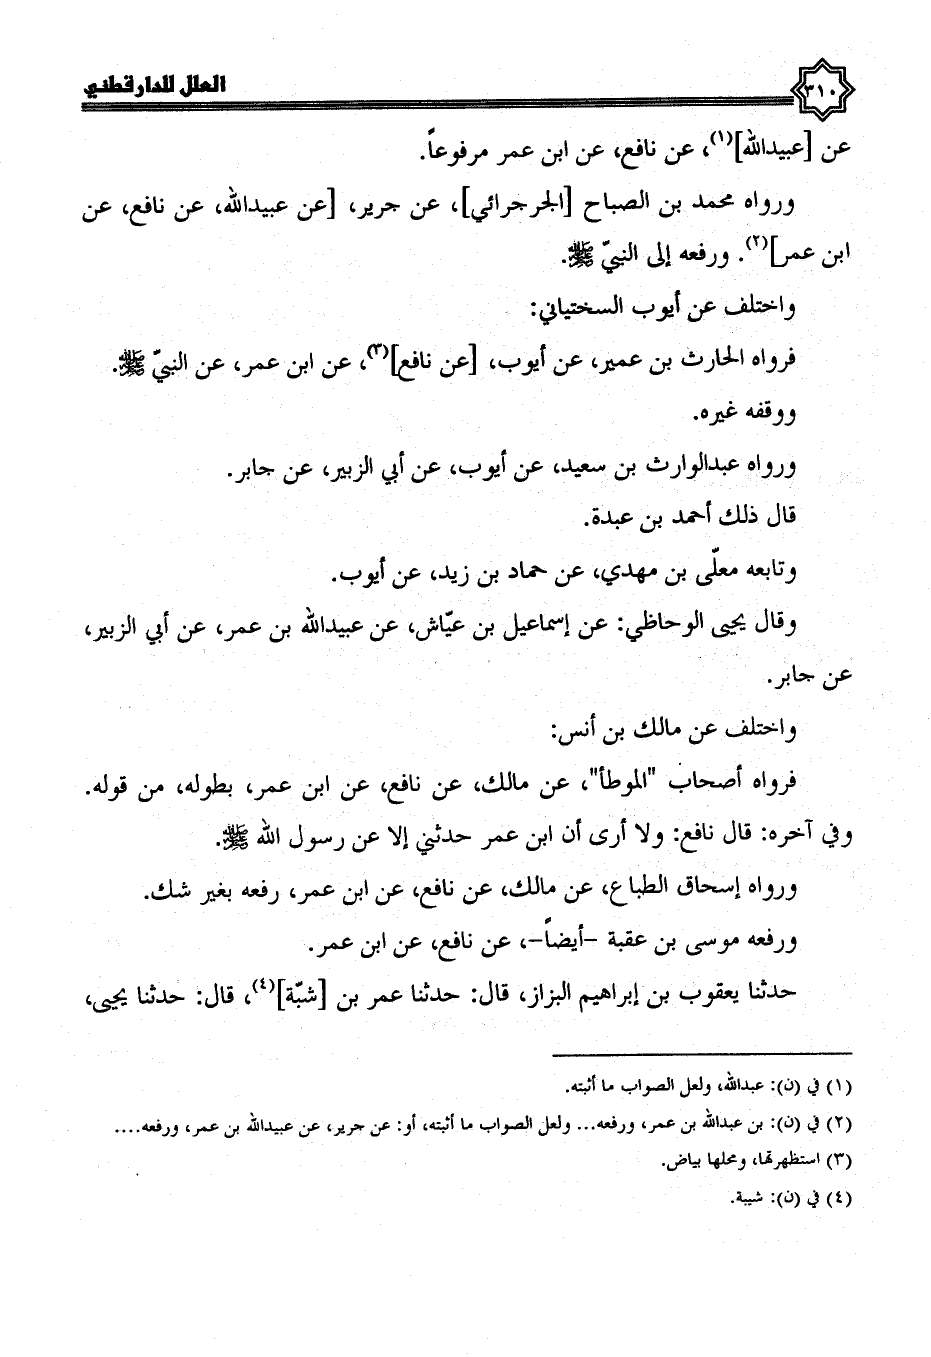 العلل للدارقطني
٣١٠
عن [عبيدالله](١)، عن نافع، عن ابن عمر مرفوعاً.
ورواه محمد بن الصباح [الجرجرائي]، عن جرير، [عن عبيدالله، عن نافع، عن
ابن عمر](٢). ورفعه إلى النبيّ ﷺ.
واختلف عن أيوب السختياني:
فرواه الحارث بن عمير، عن أيوب، [عن نافع](٣)، عن ابن عمر، عن النبيّ ﷺ.
ووقفه غيره.
ورواه عبدالوارث بن سعيد، عن أيوب، عن أبي الزبير، عن جابر.
قال ذلك أحمد بن عبدة.
وتابعه معلّى بن مهدي، عن حماد بن زيد، عن أيوب.
وقال يحيى الوحاظي: عن إسماعيل بن عيّاش، عن عبيدالله بن عمر، عن أبي الزبير،
عن جابر.
واختلف عن مالك بن أنس:
فرواه أصحاب "الموطأ"، عن مالك، عن نافع، عن ابن عمر، بطوله، من قوله.
وفي آخره: قال نافع: ولا أرى أن ابن عمر حدثني إلا عن رسول الله ﷺ.
ورواه إسحاق الطباع، عن مالك، عن نافع، عن ابن عمر، رفعه بغير شك.
ورفعه موسى بن عقبة –أيضاً–، عن نافع، عن ابن عمر.
حدثنا يعقوب بن إبراهيم البزاز، قال: حدثنا عمر بن [شبّة](٤)، قال: حدثنا يحيى،
(١) في (ن): عبدالله، ولعل الصواب ما أثبته.
(٢) في (ن): بن عبدالله بن عمر، ورفعه... ولعل الصواب ما أثبته، أو: عن جرير، عن عبيدالله بن عمر، ورفعه....
(٣) استظهرتها، ومحلها بياض.
(٤) في (ن): شيبة.